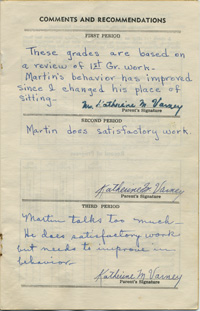 COMMENTS AND RECOMMENDATIONS
FIRST PERIOD
These grades are based on
a review of 1st Gr. work.
Martin's behavior has improved
since I changed his place of
sitting.
Mrs Katherine M. Varney
Parent's Signature
SECOND PERIOD
Martin does satisfactory work.
Katherine M. Varney
Parent's Signature
THIRD PERIOD
Martin talks too much.
He does satisfactory work
but needs to improve in
behavior.
Katherine M. Varney
Parent's Signature